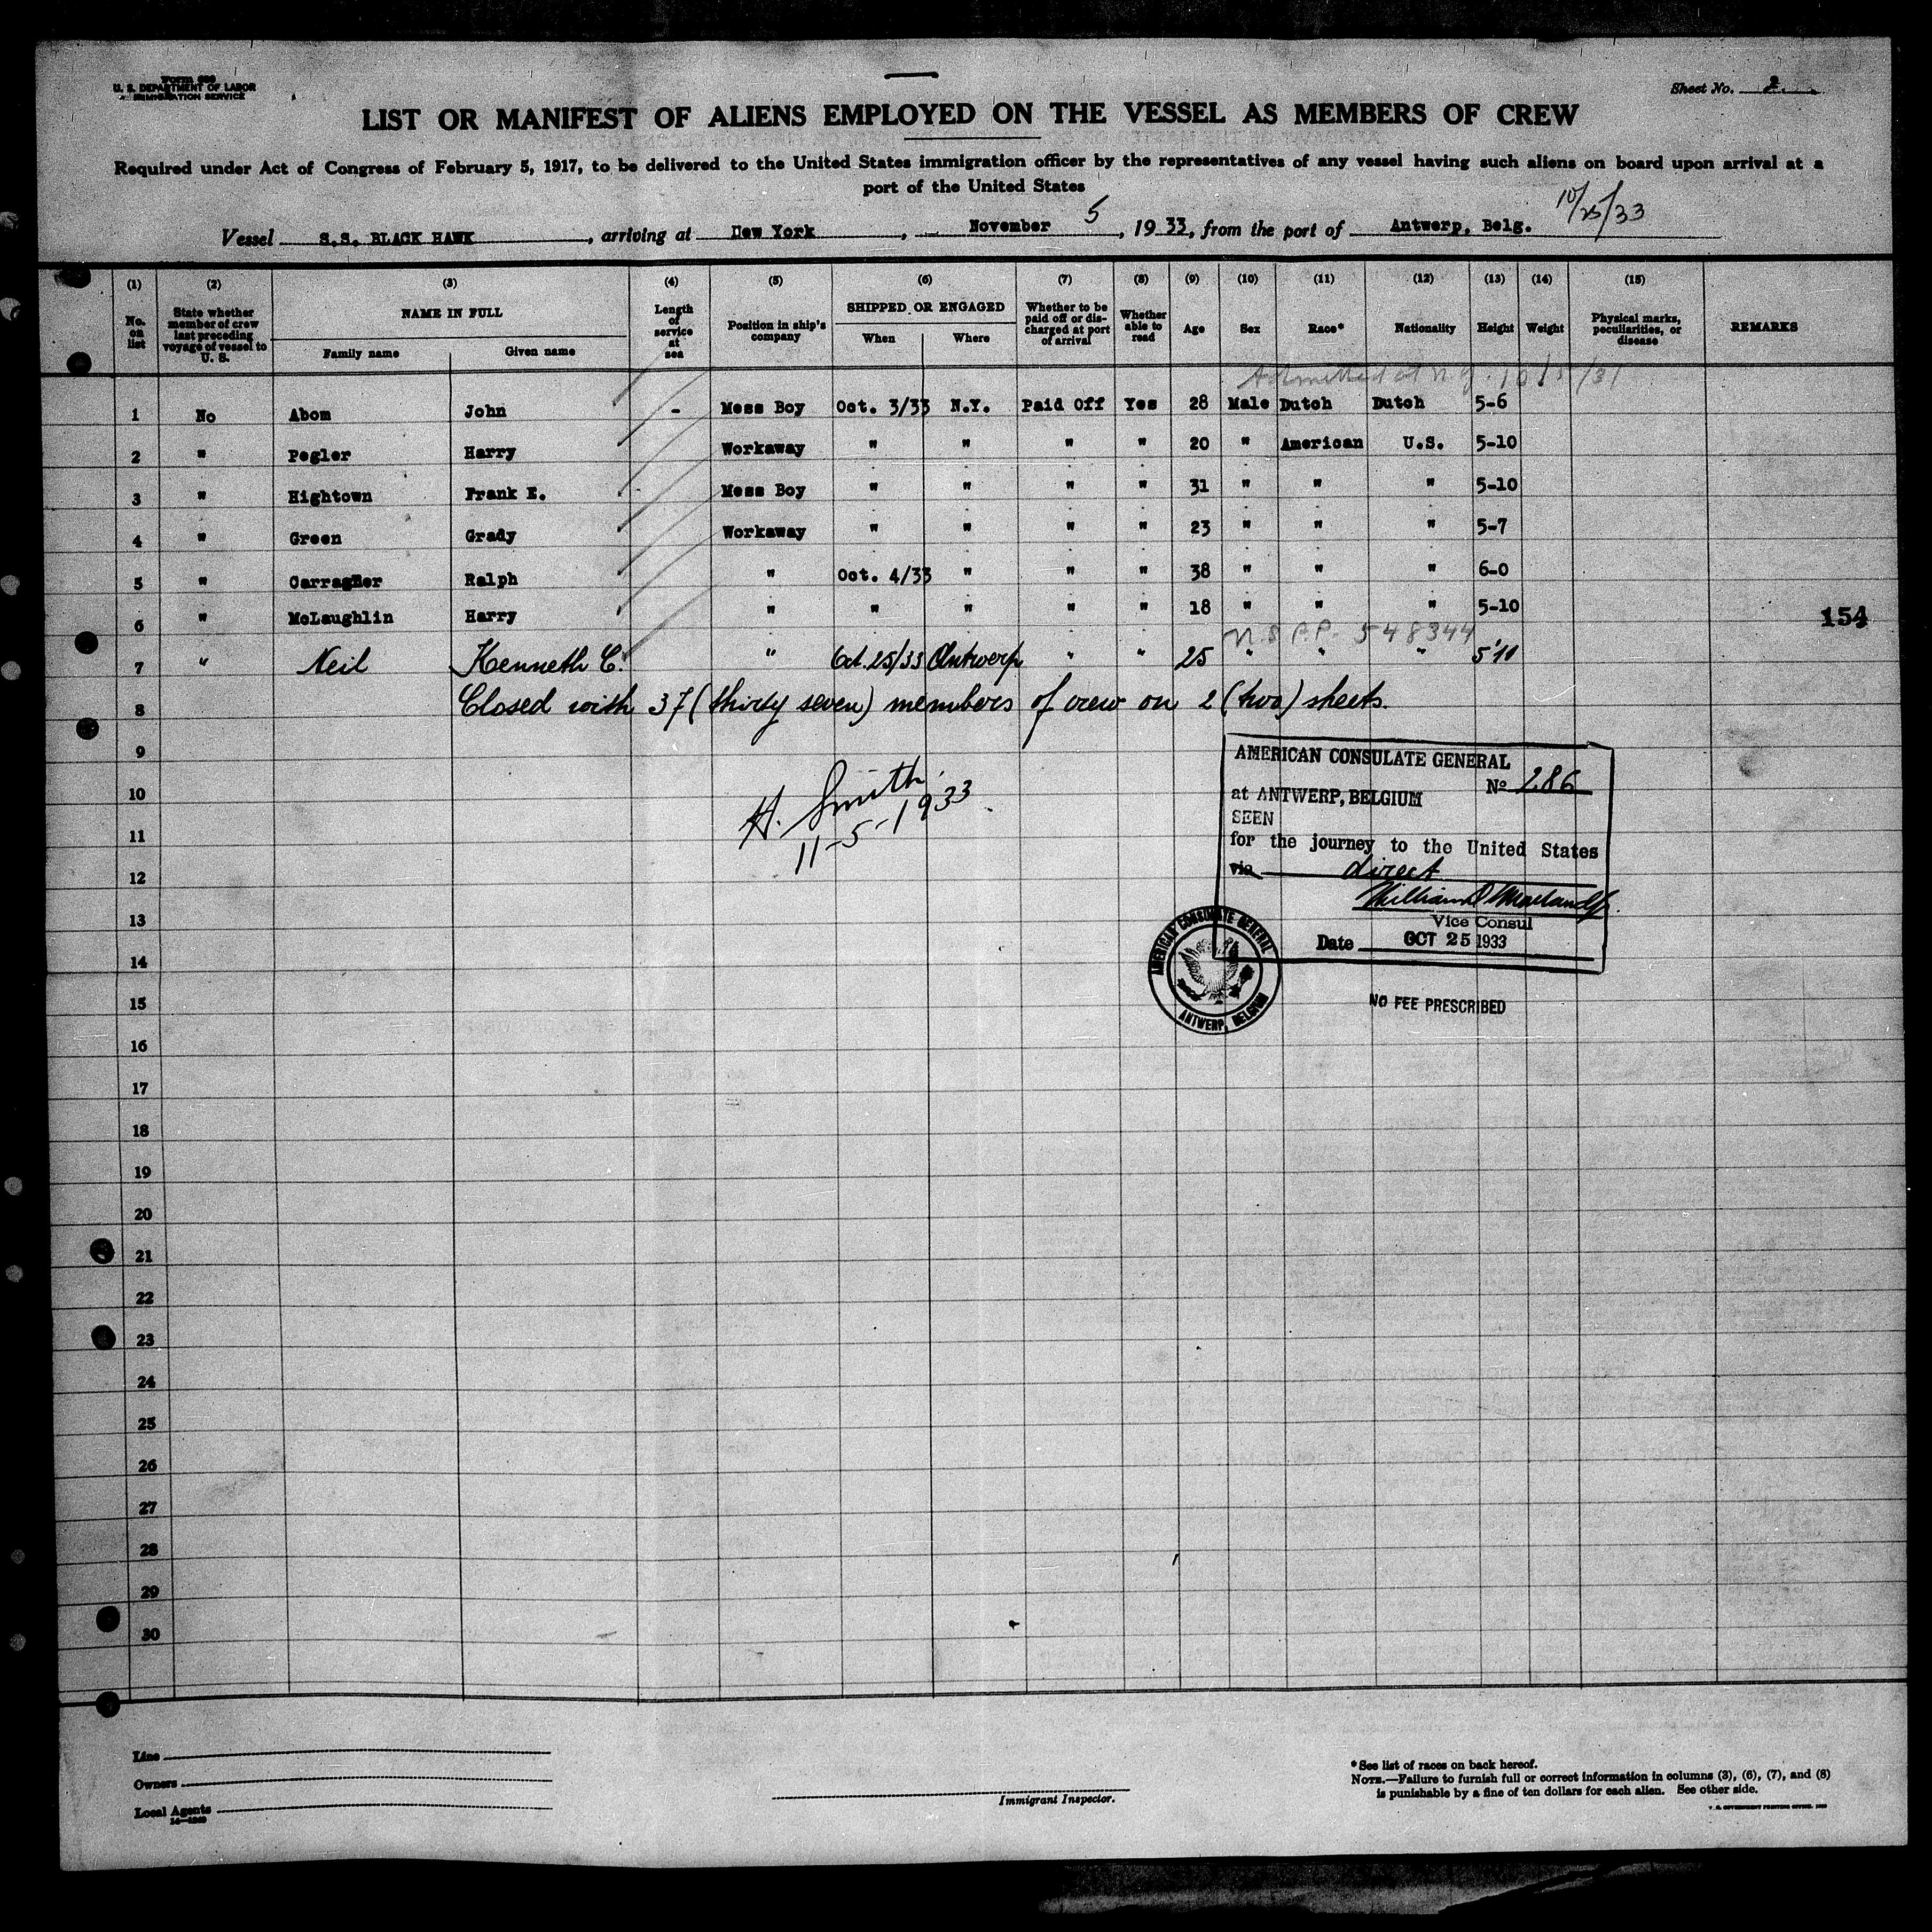 Form 689
U. S. DEPARTMENT OF LABOR
IMMIGRATION SERVICE
Sheet No. 2
LIST OR MANIFEST OF ALIENS EMPLOYED ON THE VESSEL AS MEMBERS OF CREW
Required under Act of Congress of February 5, 1917, to be delivered to the United States immigration officer by the representatives of any vessel having such aliens on board upon arrival at a
port of the United States
10/25/33
Vessel S.S. BLACK HAWK, arriving at New York, November 5, 1933, from the port of Antwerp, Belg.
(1) (2) (3) (4) (5) (6) (7) (8) (9) (10) (11) (12) (13) (14) (15)
No. on list
State whether member of crew last preceding voyage of vessel to U. S.
NAME IN FULL
Family name Given name
Length of service at sea
Position in ship's company
SHIPPED OR ENGAGED
When Where
Whether to be paid off or discharged at port of arrival
Whether able to read
Age Sex Race* Nationality Height Weight
Physical marks, peculiarities, or disease
REMARKS
Admitted at N.Y. 10/5/31
1 No Abom John - Mess Boy Oct. 3/33 N.Y. Paid Off Yes 28 Male Dutch Dutch 5-6
2 " Pegler Harry Workaway " " " " 20 " American U.S. 5-10
3 " Hightown Frank E. Mess Boy " " " " 31 " " " 5-10
4 " Green Grady Workaway " " " " 23 " " " 5-7
5 " Carragher Ralph " Oct. 4/33 " " " 38 " " " 6-0
6 " McLaughlin Harry " " " " " 18 " " " 5-10
154
P.P. 548344
7 " Neil Kenneth C. " Oct. 25/33 Antwerp " " 25 " " " 5'11
8 Closed with 37 (thirty seven) members of crew on 2 (two) sheets.
9
10
11
12
13
14
15
16
17
18
19
20
21
22
23
24
25
26
27
28
29
30
H. Smith
11-5-1933
AMERICAN CONSULATE GENERAL
No 286
at ANTWERP, BELGIUM
SEEN
for the journey to the United States
via direct
Vice Consul
Date OCT 25 1933
AMERICAN CONSULATE GENERAL
ANTWERP, BELGIUM
NO FEE PRESCRIBED
Line
Owners
Local Agents
14—1240
Immigrant Inspector.
*See list of races on back hereof.
NOTE.—Failure to furnish full or correct information in columns (3), (6), (7), and (8)
is punishable by a fine of ten dollars for each alien. See other side.